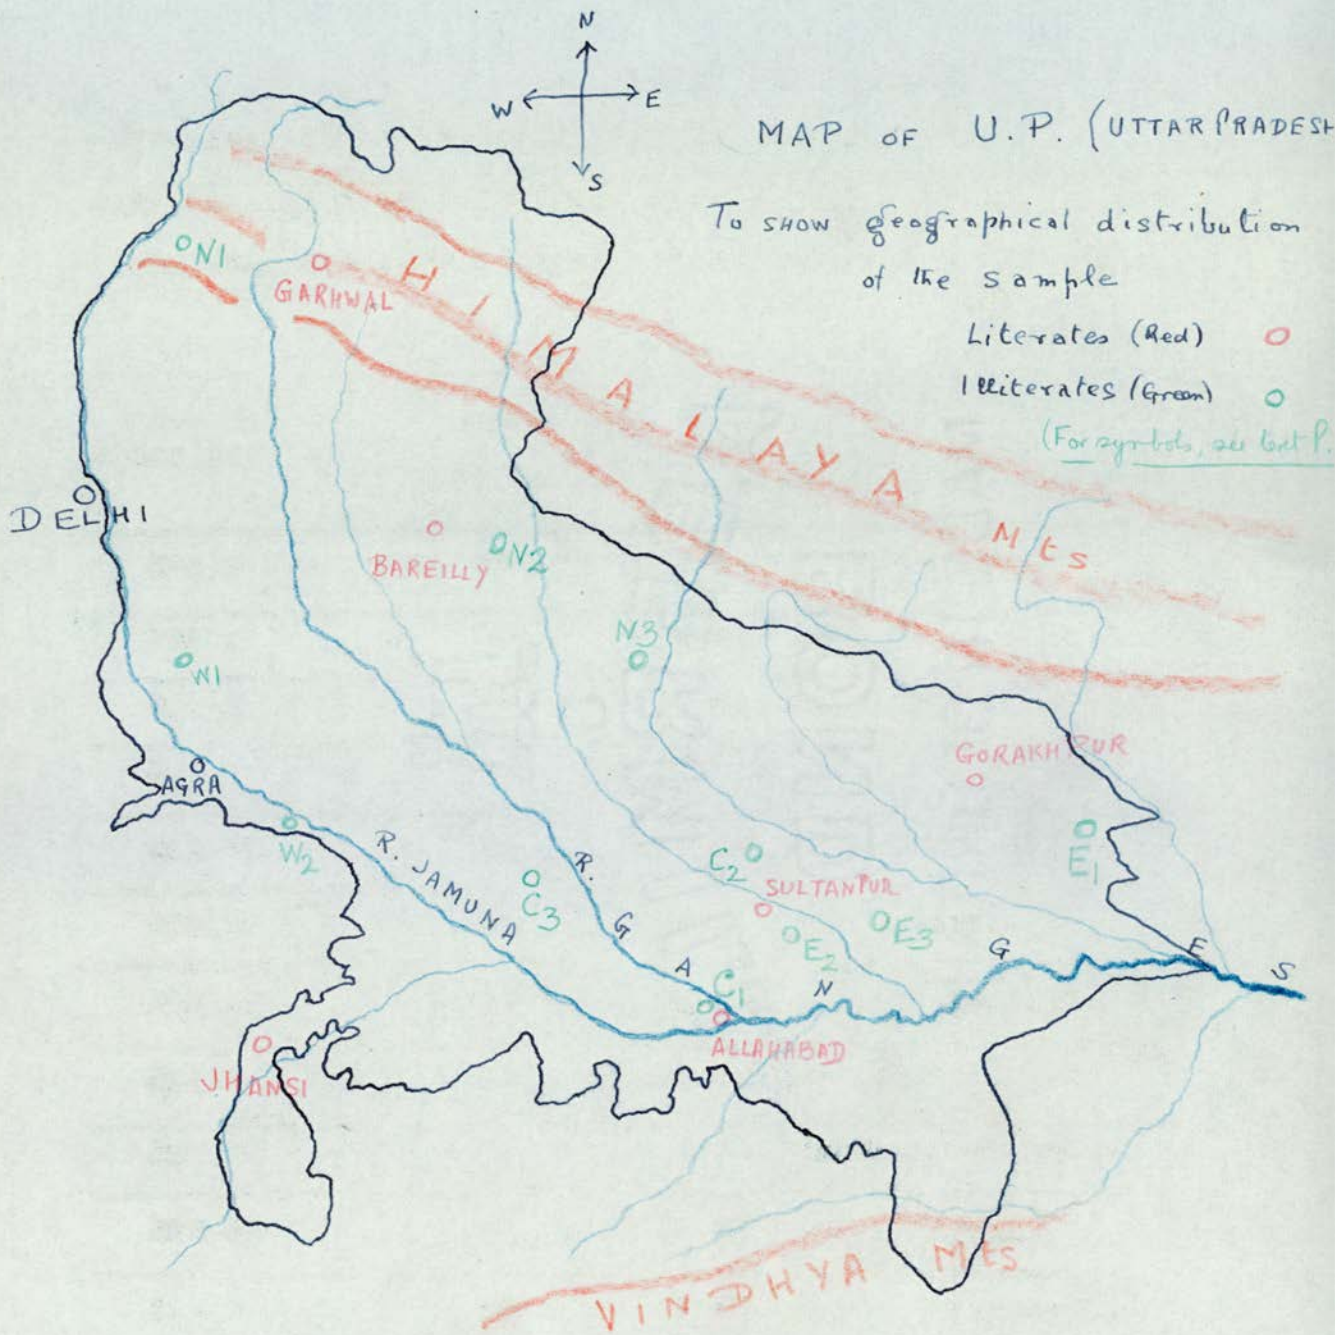 N
W E
S
MAP OF U.P. (UTTAR PRADESH
To SHOW geographical distribution
of the sample
Literates (Red)
Illiterates (Green)
(For symbols, see text P.
N1
GARHWAL
HIMALAYA Mts
DELHI
BAREILLY
N2
N3
W1
GORAKHPUR
AGRA
W2
R. JAMUNA
C3
R. GANGES
C2
SULTANPUR
E1
E2
E3
C1
ALLAHABAD
JHANSI
VINDHYA Mts